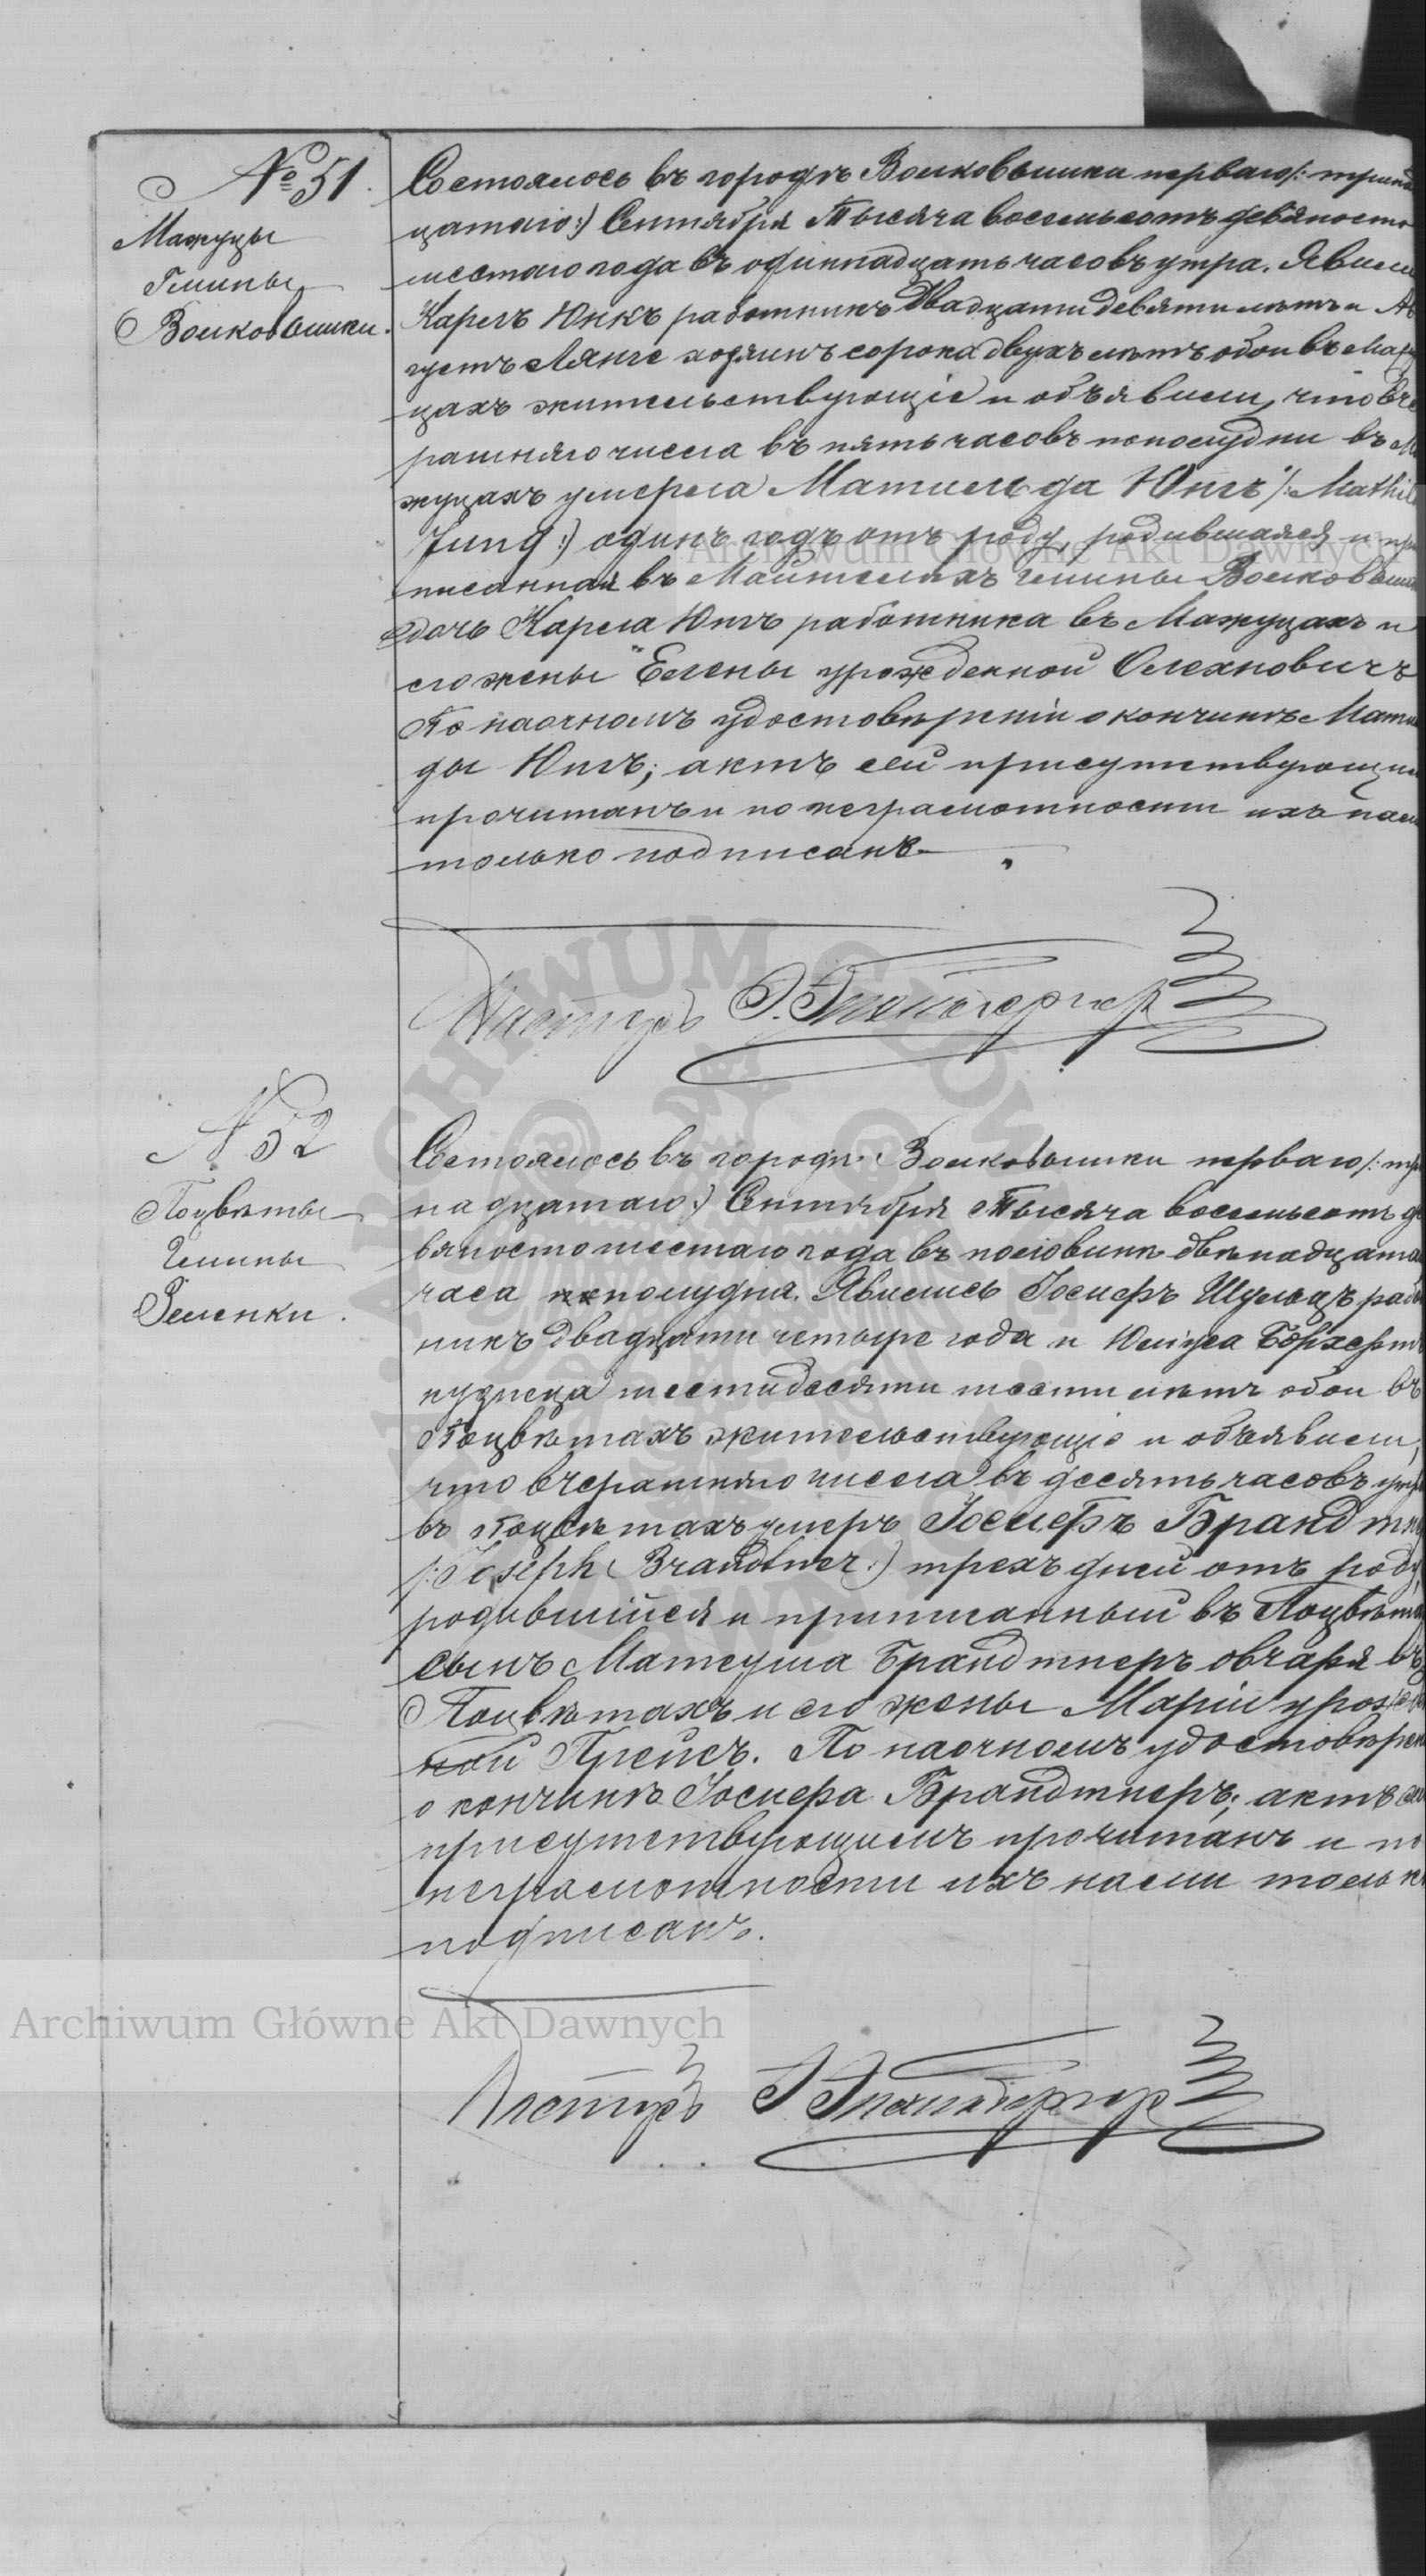 № 51.
Мажуцы
Гмины
Волковышки.
Состоялось въ городѣ Волковышки перваго /: тринад
цатаго:) Сентября Тысяча восемьсотъ девяносто
шестаго года въ одиннадцать часовъ утра. Явились
Карлъ Юнкъ работникъ двадцати девяти лѣтъ и Ав
густъ Лянге хозяинъ сорока двухъ лѣтъ обои въ Мажу
цахъ жительствующіе и объявили, что вче
рашняго числа въ пять часовъ пополудни въ Ма
жуцахъ умерла Матильда Юнгъ /: Mathil
Jung:) одинъ годъ отъ роду, родившаяся и при
писанная въ Майтелихъ гмины Волковышки
дочь Карла Юнгъ работника въ Мажуцахъ и
его жены Елены урожденной Олехновичъ
По наочномъ удостовѣреніи о кончинѣ Матиль
ды Юнгъ; актъ сей присутствующимъ
прочитанъ и по неграмотности ихъ нами
только подписанъ.
Пасторъ
N 52
Поцвѣты
Гмины
Зеленки.
Состоялось въ городѣ Волковышки перваго /: три
надцатаго:) Сентября Тысяча восемьсотъ де
вяносто шестаго года въ половинѣ двѣнадцата
часа пополудня. Явились Іосифъ Шульцъ рабо
никъ двадцати четыре года и Юліуса Борхертъ
кузнеца шестидесяти шести лѣтъ обои въ
Поцвѣтахъ жительствующіе и объявили,
что вчерашняго числа въ десять часовъ утра
въ Поцвѣтахъ умеръ Іосифъ Брандтн
/: Joseph Brandtner:) трехъ дней отъ роду,
родившійся и приписанный въ Поцвѣта
сынъ Матеуша Брандтнеръ овчаря въ
Поцвѣтахъ и его жены Маріи урожден
ной Прейсъ. По наочномъ удостовѣрен
о кончинѣ Іосифа Брандтнеръ; актъ сей
присутствующимъ прочитанъ и по
неграмотности ихъ нами тольк
подписанъ.
Пасторъ
Archiwum Główne Akt Dawnych
Archiwum Główne Akt Dawnych